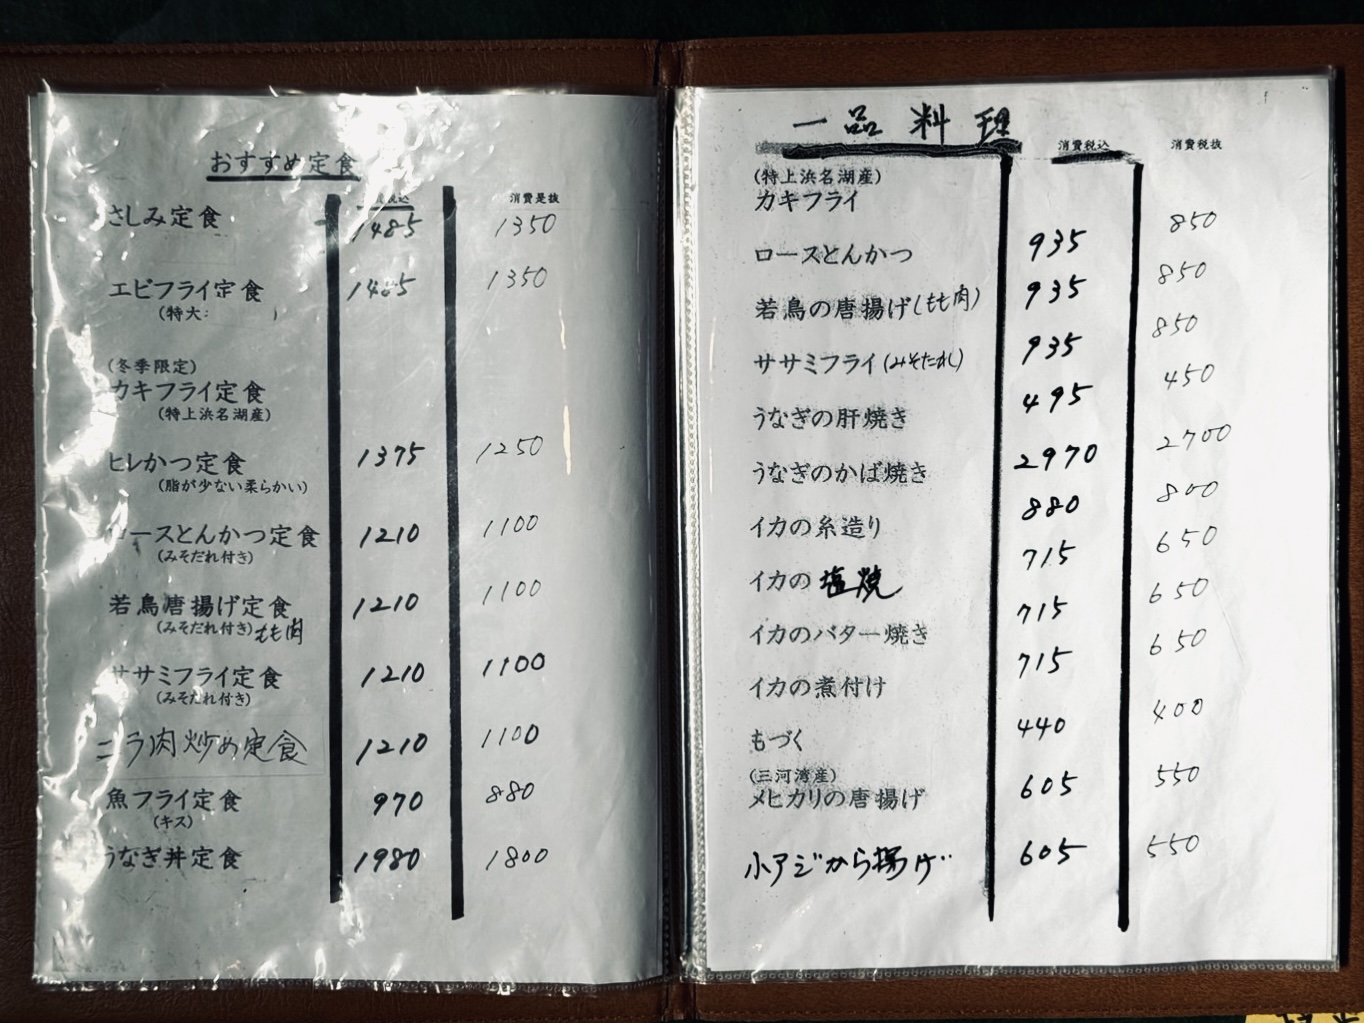 おすすめ定食
税込 消費是抜
さしみ定食 1485 1350
エビフライ定食 1485 1350
(特大: )
(冬季限定)
カキフライ定食
(特上浜名湖産)
ヒレかつ定食 1375 1250
(脂が少ない柔らかい)
ロースとんかつ定食 1210 1100
(みそだれ付き)
若鳥唐揚げ定食 1210 1100
(みそだれ付き)もも肉
ササミフライ定食 1210 1100
(みそだれ付き)
ニラ肉炒め定食 1210 1100
魚フライ定食 970 880
(キス)
うなぎ丼定食 1980 1800
一品料理
消費税込 消費税抜
(特上浜名湖産)
カキフライ
ロースとんかつ 935 850
若鳥の唐揚げ(もも肉) 935 850
ササミフライ(みそたれ) 935 850
うなぎの肝焼き 495 450
うなぎのかば焼き 2970 2700
イカの糸造り 880 800
イカの塩焼 715 650
イカのバター焼き 715 650
イカの煮付け 715 650
もづく 440 400
(三河湾産)
メヒカリの唐揚げ 605 550
小アジから揚げ 605 550